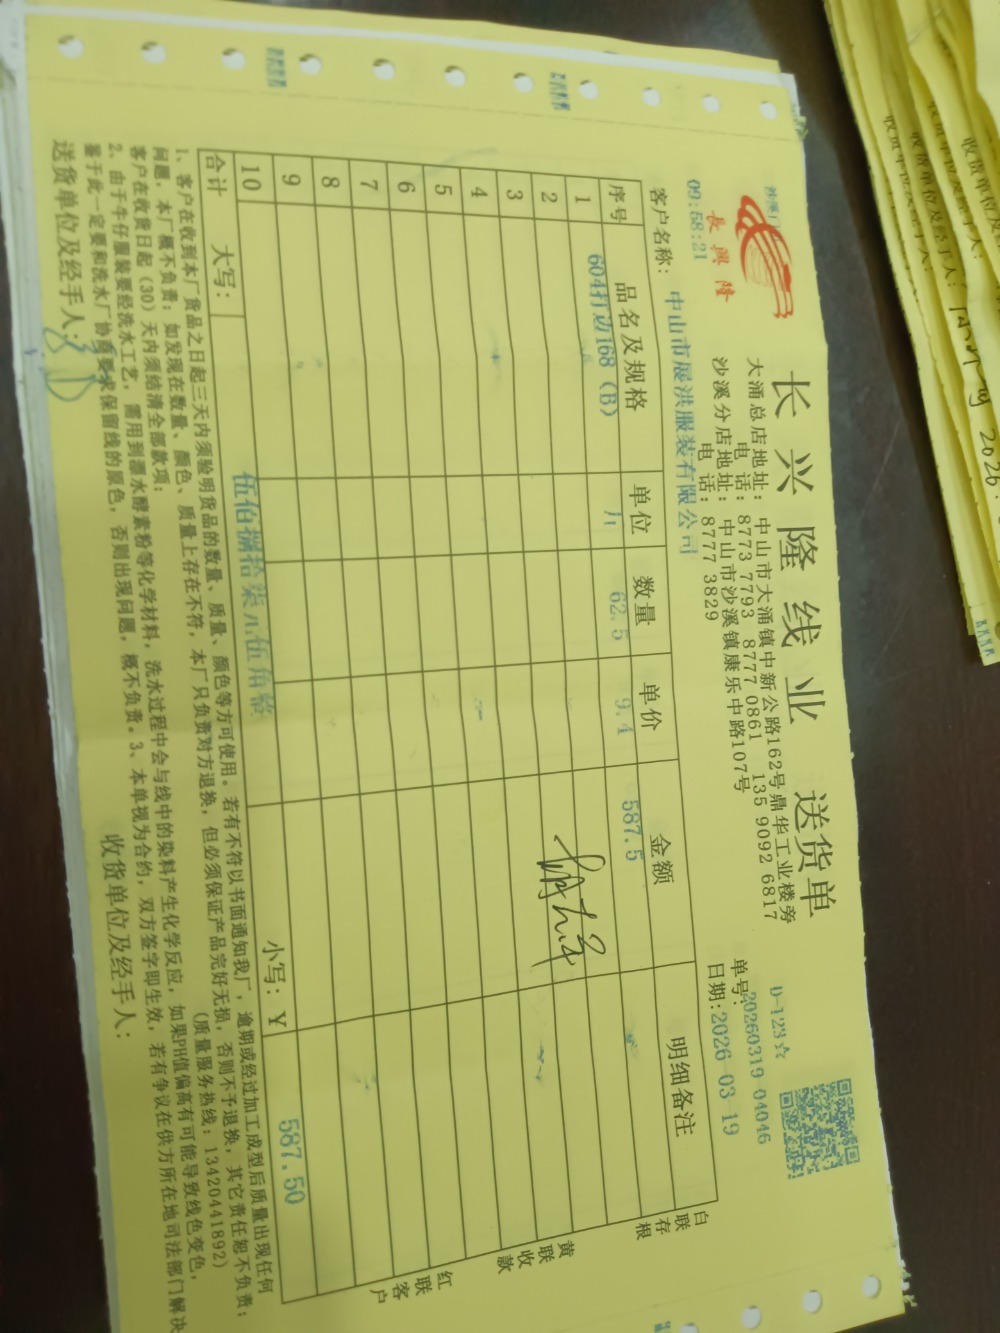 长兴隆线业 送货单
長興隆
大涌总店地址: 中山市大涌镇中新公路162号鼎华工业楼旁
电 话: 8773 7793 8777 0861 135 9092 6817
沙溪分店地址: 中山市沙溪镇康乐中路107号
电 话: 8777 3829
D-123☆
单号: 20260319 04046
日期: 2026 03 19
09:58:21
客户名称: 中山市展洪服装有限公司
序号 品名及规格 单位 数量 单价 金额 明细备注
1 604打边168 (B) 62.5 9.4 587.5
2
3
4
5
6
7
8
9
10
合计 大写: 伍佰捌拾柒元伍角整 小写: ¥ 587.50
白联存根
黄联收款
红联客户
1、客户在收到本厂货品之日起三天内须验明货品的数量、质量、颜色等方可使用。若有不符以书面通知我厂，逾期或经过加工成型后质量出现任何
问题，本厂概不负责；如发现在数量、颜色、质量上存在不符，本厂只负责对方退换，但必须保证产品完好无损，否则不予退换，其它责任恕不负责；
客户在收货日起（30）天内须结清全部款项； (质量服务热线: 13420441892)
2、由于牛仔服装要经洗水工艺，需用到漂水酵素粉等化学材料，洗水过程中会与线中的染料产生化学反应，如果PH值偏高有可能导致线色变色，
鉴于此一定要和洗水厂协商要求保留线的原色，否则出现问题，概不负责。3、本单视为合约，双方签字即生效，若有争议在供方所在地司法部门解决
送货单位及经手人: 收货单位及经手人:
收货单位及经手人:
2026.